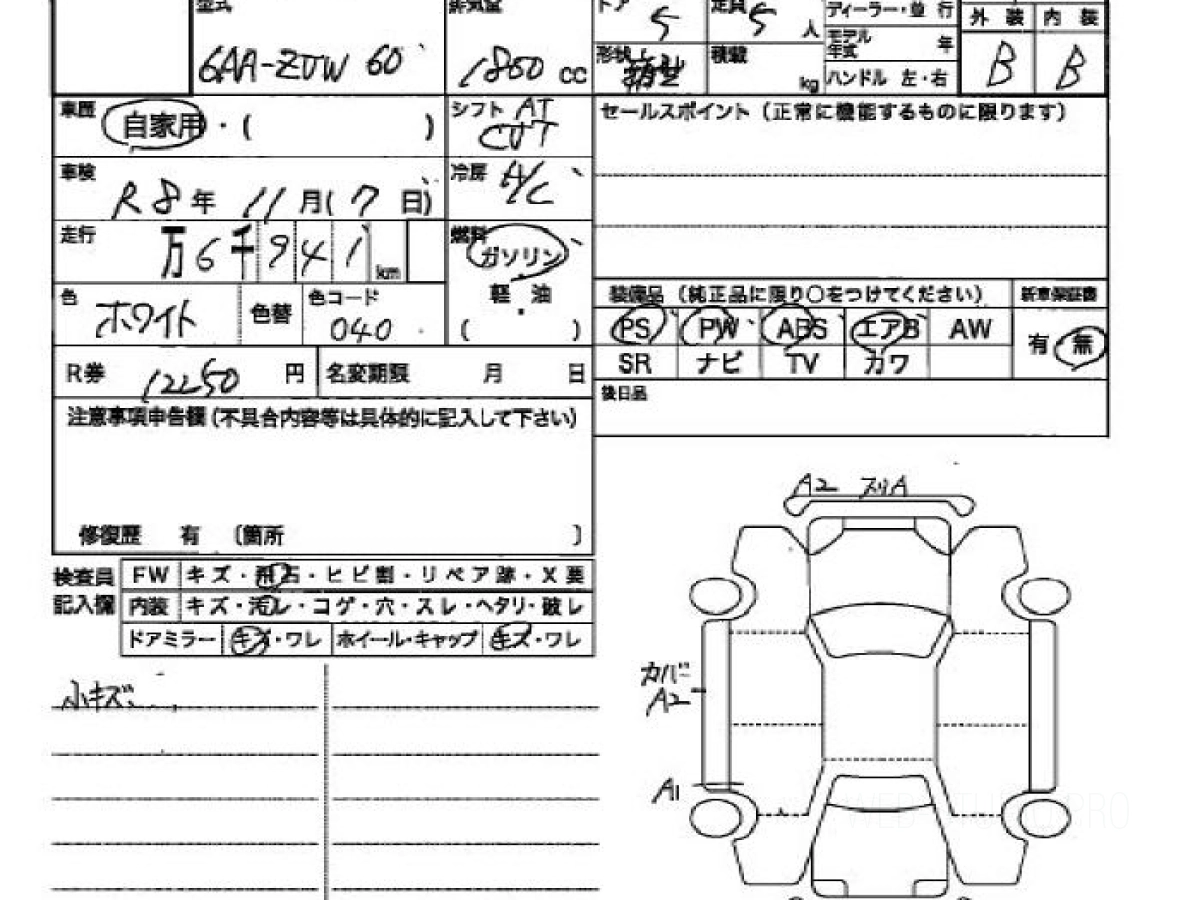 型式 排気量 ドア 5 定員 5 人 ディーラー・並行 外装 内装
6AA-ZVW 60 1800 cc 形状 積載 kg モデル年式 年 B B
ハンドル 左・右
車歴 自家用・( ) シフト AT CVT セールスポイント (正常に機能するものに限ります)
車検 R8年 11月(7日) 冷房 A/C
走行 万6千941km 燃料 ガソリン
軽・油
( )
色 ホワイト 色替 色コード 040
装備品 (純正品に限り○をつけてください) 新車保証書
PS PW ABS エアB AW 有・無
SR ナビ TV カワ
R券 12250 円 名変期限 月 日
後日品
注意事項申告欄(不具合内容等は具体的に記入して下さい)
修復歴 有 〔箇所 〕
検査員記入欄 FW キズ・飛石・ヒビ割・リペア跡・X要
内装 キズ・汚レ・コゲ・穴・スレ・ヘタリ・破レ
ドアミラー キズ・ワレ ホイール・キャップ キズ・ワレ
小キズ
A2 スリA
カバー
A2
A1